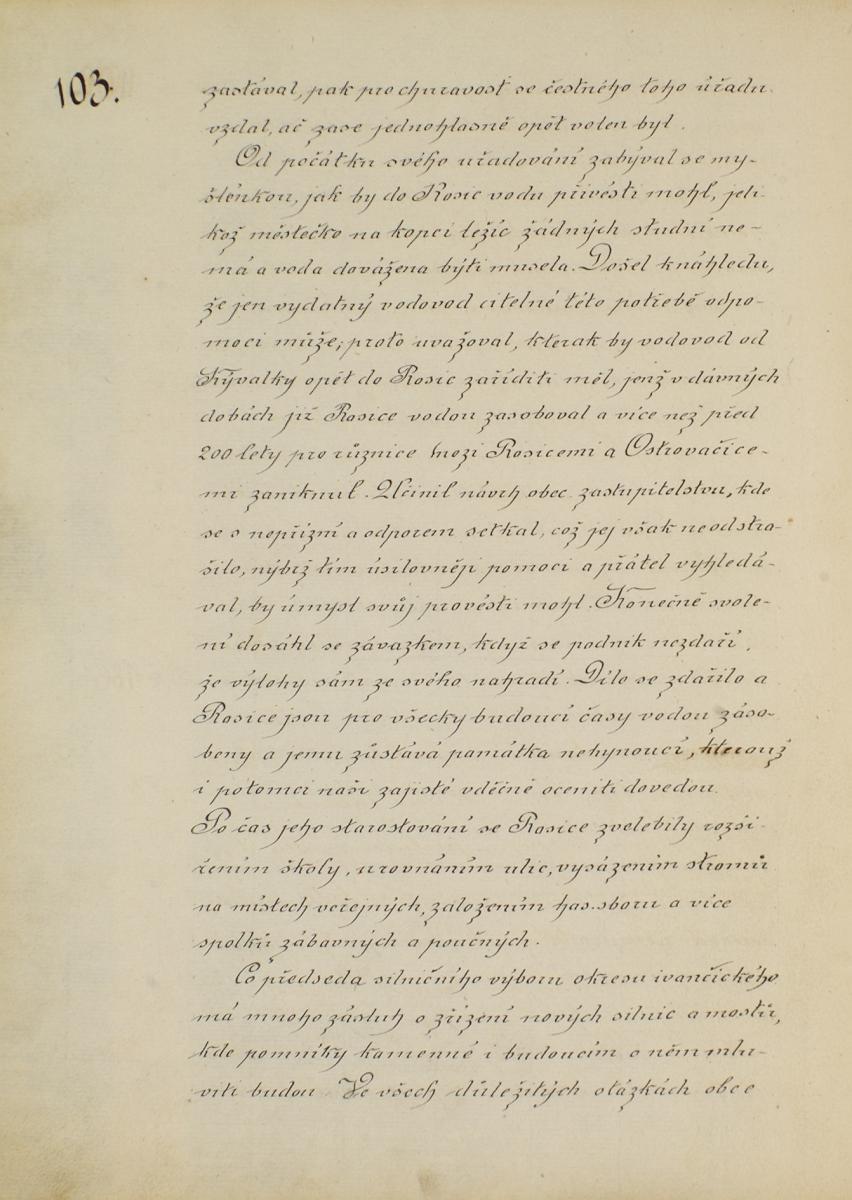 103.
zastával, pak pro churavost se čestného toho úřadu
vzdal, ač zase jednohlasně opět volen byl.
Od počátku svého uřadování zabýval se my-
šlénkou, jak by do Rosic vodu přivésti mohl, jeli-
kož městečko na kopci ležíc žádných studní ne-
má a voda dovážena býti musela. Došel k náhledu,
že jen vydatný vodovod citelné této potřebě odpo-
moci může; proto uvažoval, kterak by vodovod od
Kývalky opět do Rosic zaříditi měl, jenž v dávných
dobách již Rosice vodou zasoboval a více než před
200 lety pro různice mezi Rosicemi a Ostrovačice-
mi zaniknul. Učinil návrh obec. zastupitelstvu, kde
se s nepřízní a odporem setkal, což jej však neodstra-
šilo, nýbrž tím úsilovněji pomoci a přátel vyhledá-
val, by úmysl svůj provésti mohl. Konečně svole-
ní dosáhl se závazkem, když se podnik nezdaří,
že výlohy sám ze svého nahradí. Dílo se zdařilo a
Rosice jsou pro všecky budoucí časy vodou záso-
beny a jemu zůstává památka nehynoucí, kterouž
i potomci naši zajisté vděčně oceniti dovedou.
Po čas jeho starostování se Rosice zvelebily rozší-
řením školy, urovnáním ulic, vysázením stromů
na místech veřejných, založením has. sboru a více
spolků zábavných a poučných.
Co předseda silničního výboru okresu ivančického
má mnoho zásluh o zřízení nových silnic a mostů,
kde pomníky kamenné i budoucím o něm mlu-
viti budou Ve všech důležitých otázkách obce